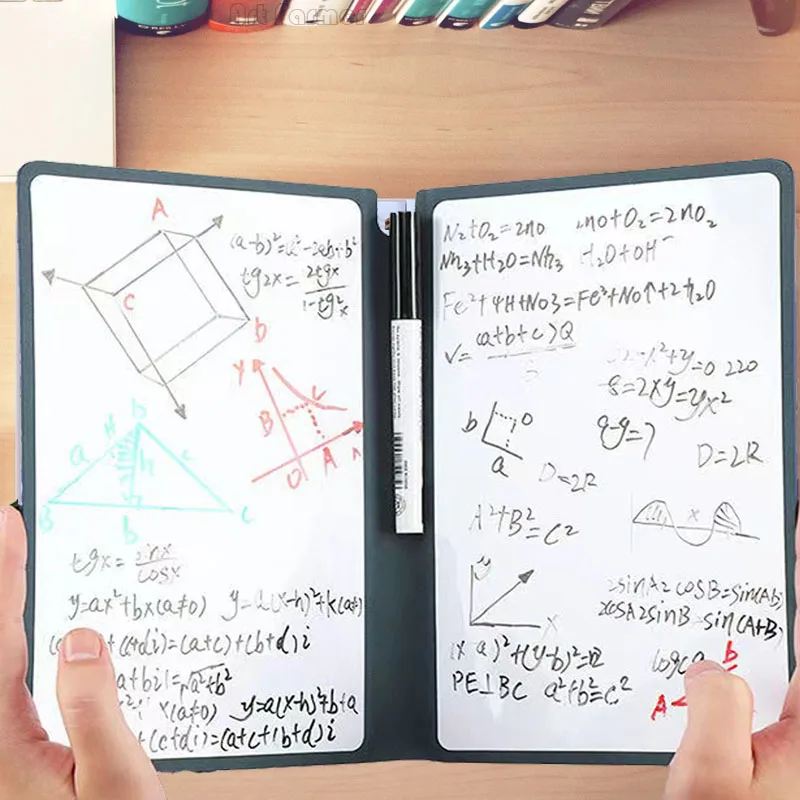 Art Farmer
A
(a-b)²=a²-2ab+b²
tg2x= 2tgx
1-tg²x
C
D
Y
B
C
O A
a h c
B b C
tgx= sinx
cosx
y=ax²+bx(a≠0) y=a(x-h)²+k(a≠)
+(c+di)=(a+c)+(b+d)i
a+bi|=√a²+b²
x(a≠0) y=a(x-h)²+b+a
+(c+di)=(a+c+(b+d)i
N₂+O₂=2no 2no+O₂=2nO₂
Nh₃+H₂O=Nh₃ H₂O+OH⁻
Fe²+4H+No3=Fe³+No↑+2H₂O
√= (a+b+c)Q
+y=0 220
8=2xy=yx²
b O
a
q-y=7
D=2R
D=2R
A²+B²=C²
x
y
x
2sinA2cosB=sin(Ab)
2cosA2sinB=sin(A+B)
(x a)²+(y-b)²=
logca b
PE⊥BC a²+b²=c²
A<